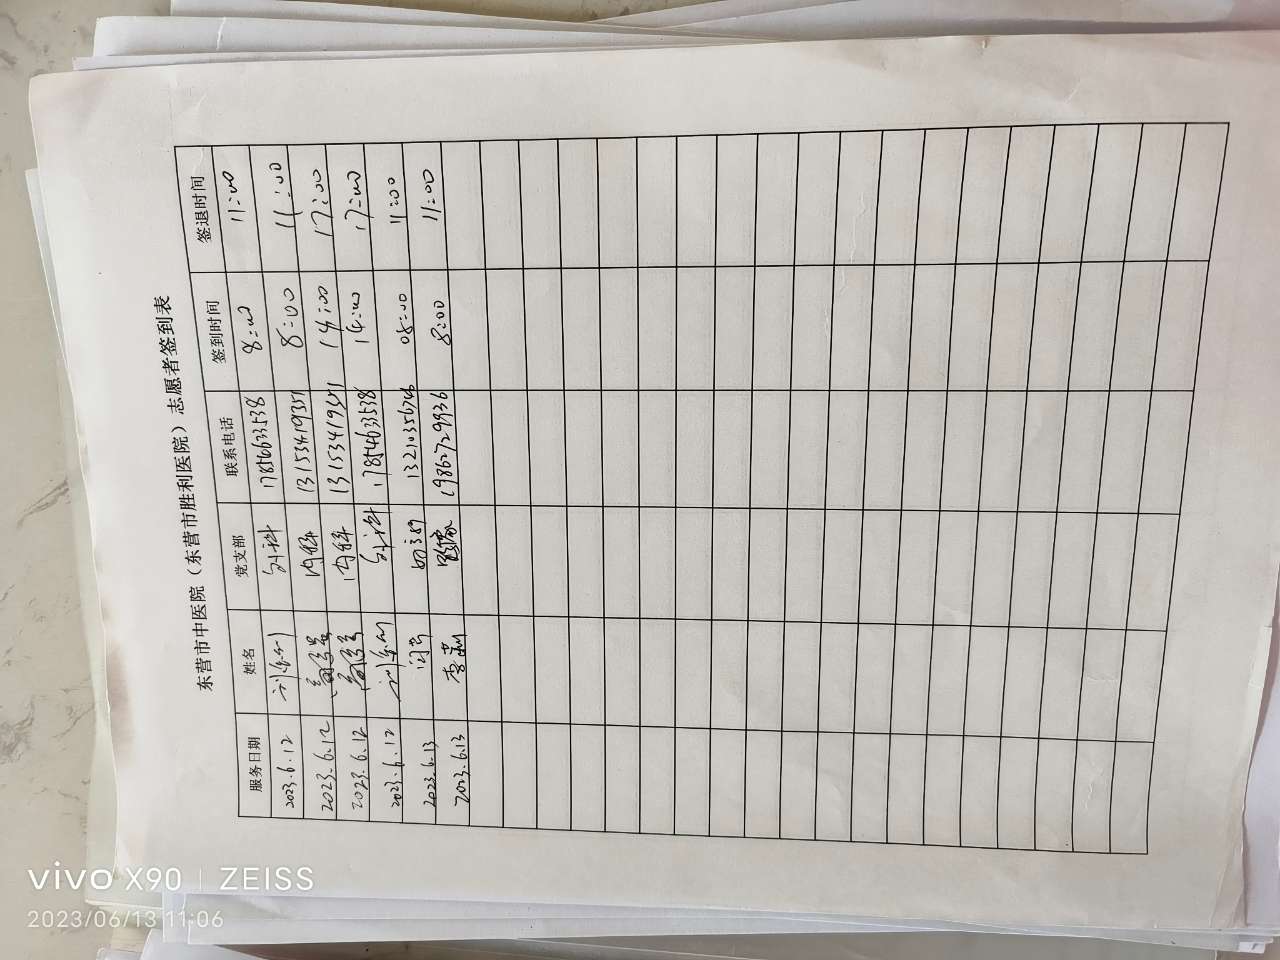 东营市中医院（东营市胜利医院）志愿者签到表
服务日期 姓名 党支部 联系电话 签到时间 签退时间
2023.6.12 外科 17854633538 8:00 11:00
2023.6.12 内科 13153419351 8:00 11:00
2023.6.12 内科 13153419351 14:00 17:00
2023.6.12 外科 17854633538 14:00 17:00
2023.6.13 08:00 11:00
2023.6.13 李 19862729936 8:00 11:00
vivo X90 | ZEISS
2023/06/13 11:06